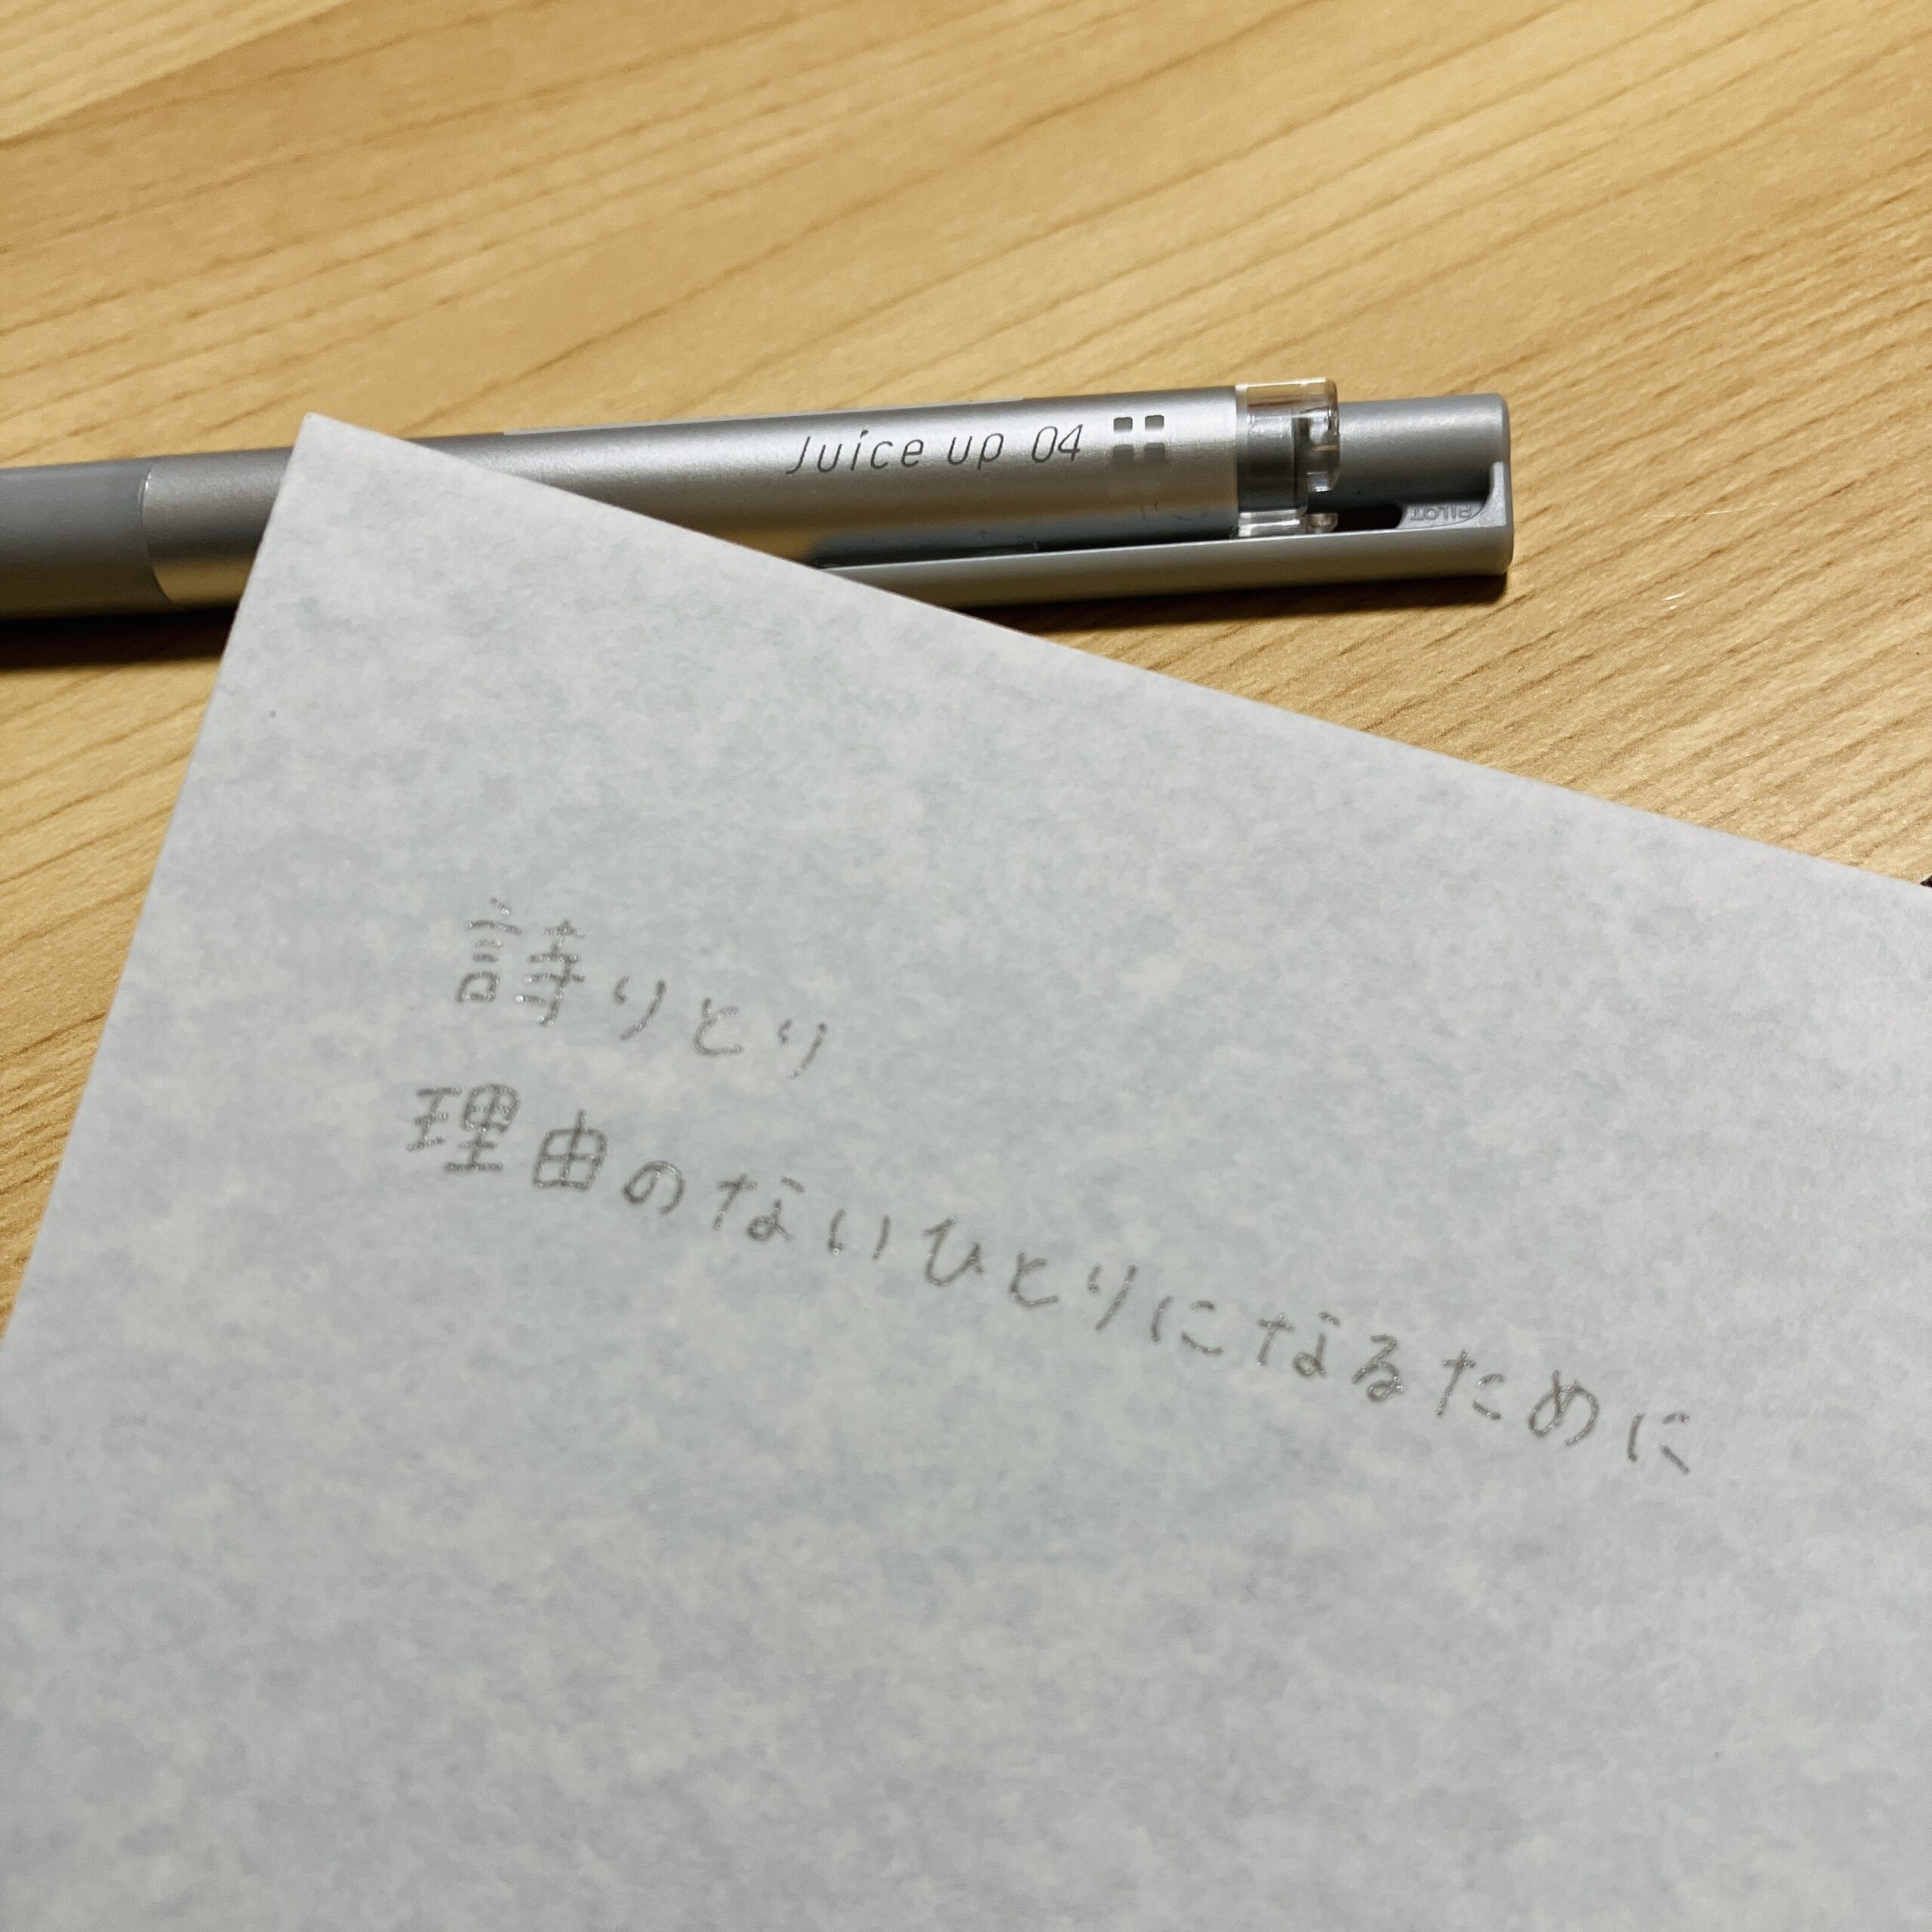 Juice up 04
PILOT
詩りとり
理由のないひとりになるために